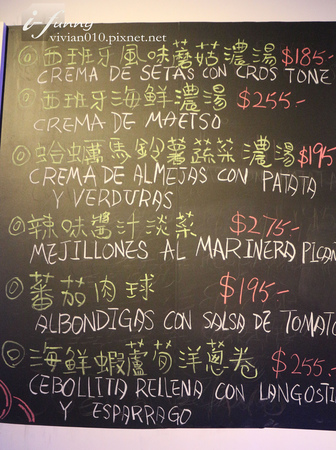 i-funny
vivian010.pixnet.net
◎西班牙風味蘑菇濃湯 $185-
CREMA DE SETAS CON CROSTONE
◎西班牙海鮮濃湯 $255-
CREMA DE MAETSO
◎蛤蠣馬鈴薯蔬菜濃湯 $195
CREMA DE ALMEJAS CON PATATA
Y VERDURAS
◎辣味醬汁淡菜 $275-
MEJILLONES AL MARINERA PICAN
◎蕃茄肉球 $195-
ALBONDIGAS CON SALSA DE TOMAT
◎海鮮蝦蘆筍洋蔥卷 $255-
CEBOLLITA RELLENA CON LANGOSTI
Y ESPARRAGO